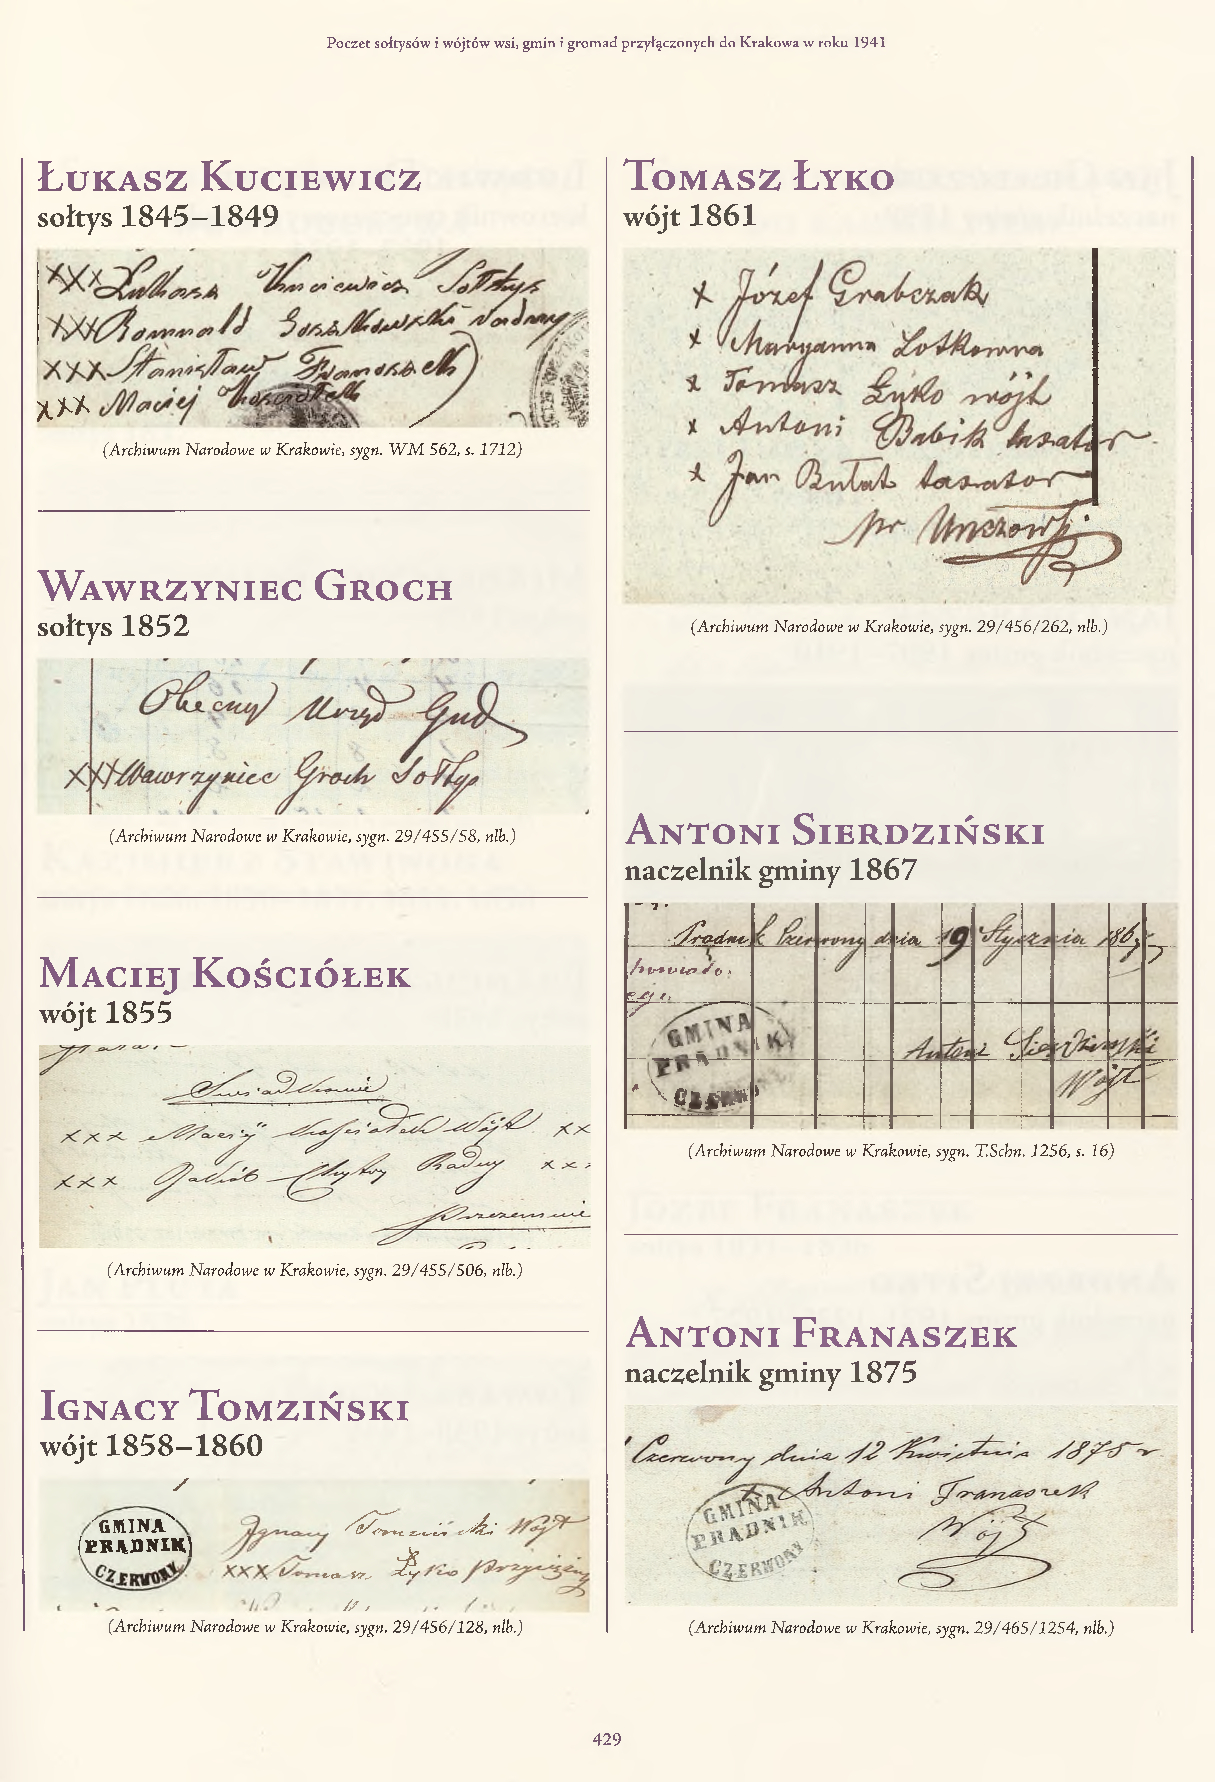 Poczet sołtysów i wójtów wsi, gmin i gromad przyłączonych do Krakowa w roku 1941
Łukasz Kuciewicz
sołtys 1845–1849
XXX Łukasz Kuciewicz Sołtys
XXX Romuald
XXX Stanisław Franaszek
XXX Maciej Kosciołek
(Archiwum Narodowe w Krakowie, sygn. WM 562, s. 1712)
Wawrzyniec Groch
sołtys 1852
Obecny Urząd
XXX Wawrzyniec Groch Sołtys
(Archiwum Narodowe w Krakowie, sygn. 29/455/58, nlb.)
Maciej Kościółek
wójt 1855
XXX Maciej Kościołek Wójt XX
XXX Jakób Radny XX
(Archiwum Narodowe w Krakowie, sygn. 29/455/506, nlb.)
Ignacy Tomziński
wójt 1858–1860
GMINA
PRADNIK
CZERWONY
Ignacy Tomziński Wójt
XXX Tomasz Łyko Przysiężny
(Archiwum Narodowe w Krakowie, sygn. 29/456/128, nlb.)
Tomasz Łyko
wójt 1861
x Józef Grabczak
x Maryanna Lotkowna
x Tomasz Łyko wójt
x Antoni Babik taxator
x Jan Bułat taxator
(Archiwum Narodowe w Krakowie, sygn. 29/456/262, nlb.)
Antoni Sierdziński
naczelnik gminy 1867
Pradnik Czerwony dnia 19 Stycznia 1867
GMINA
PRADNIK
CZERWONY
Antoni Sierdziński
Wójt
(Archiwum Narodowe w Krakowie, sygn. T.Schn. 1256, s. 16)
Antoni Franaszek
naczelnik gminy 1875
Czerwony dnia 12 Kwietnia 1875 r
GMINA
PRADNIK
CZERWONY
x Antoni Franaszek
Wójt
(Archiwum Narodowe w Krakowie, sygn. 29/465/1254, nlb.)
429